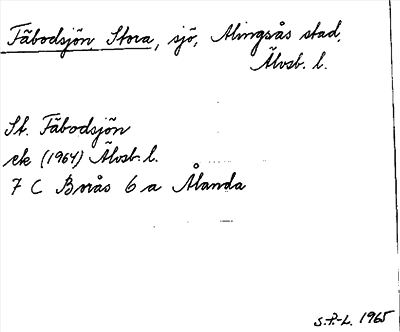 Fäbodsjön, Stora, sjö, Alingsås stad,
Älvsb. l.
St. Fäbodsjön
ek (1964) Älvsb. l.
7 C Borås 6 a Ålanda
S.P.-L. 1965